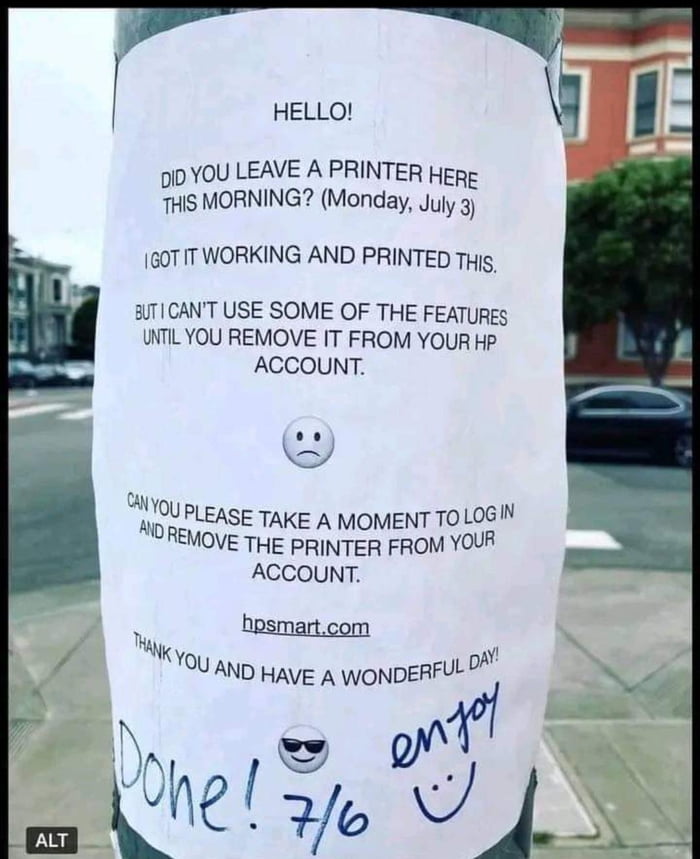 HELLO!
DID YOU LEAVE A PRINTER HERE
THIS MORNING? (Monday, July 3)
I GOT IT WORKING AND PRINTED THIS.
BUT I CAN'T USE SOME OF THE FEATURES
UNTIL YOU REMOVE IT FROM YOUR HP
ACCOUNT.
CAN YOU PLEASE TAKE A MOMENT TO LOG IN
AND REMOVE THE PRINTER FROM YOUR
ACCOUNT.
hpsmart.com
THANK YOU AND HAVE A WONDERFUL DAY!
Done! 7/6
enjoy
ALT